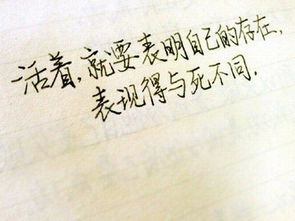 活着，就要表明自己的存在，
表现得与死不同.